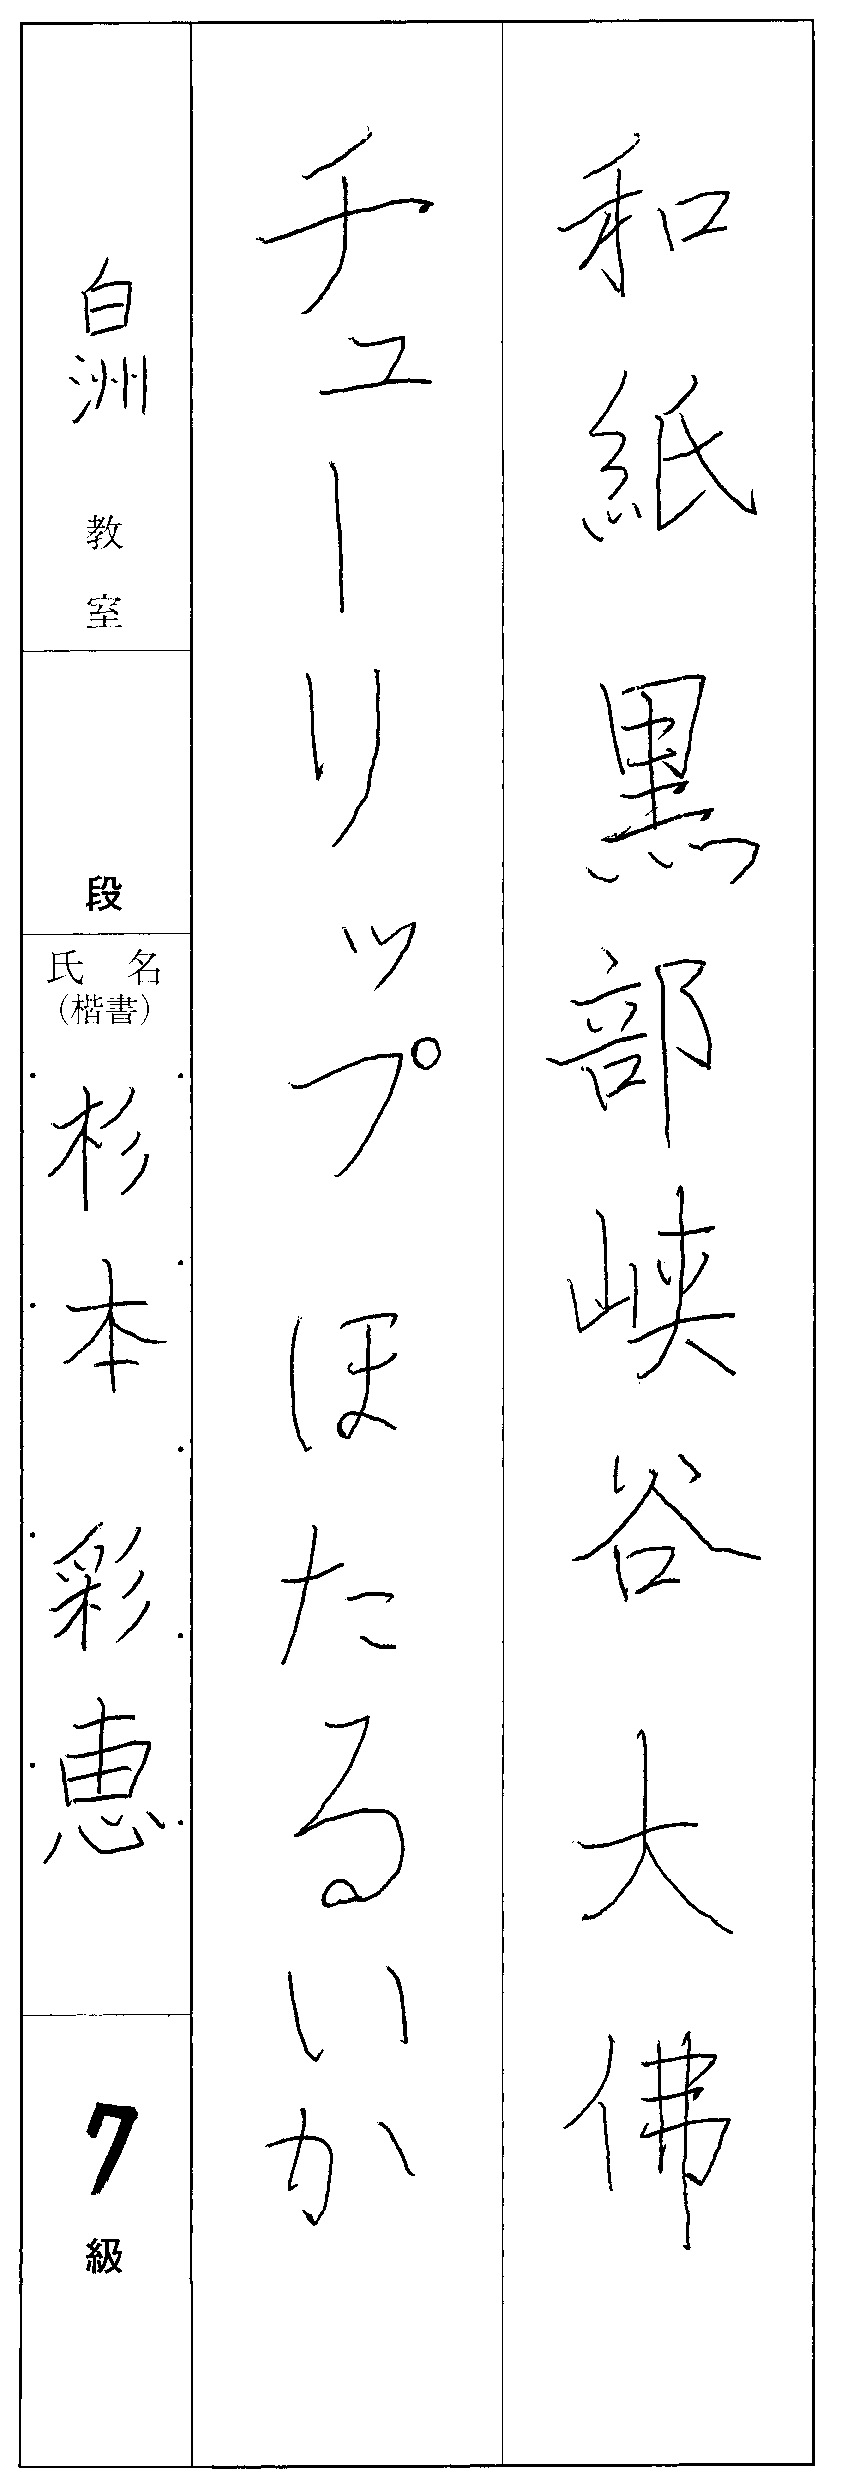 和紙 黒部峡谷 大佛
チューリップ ほたるいか
白洲 教室
段
氏名
(楷書)
杉本 彩恵
7級